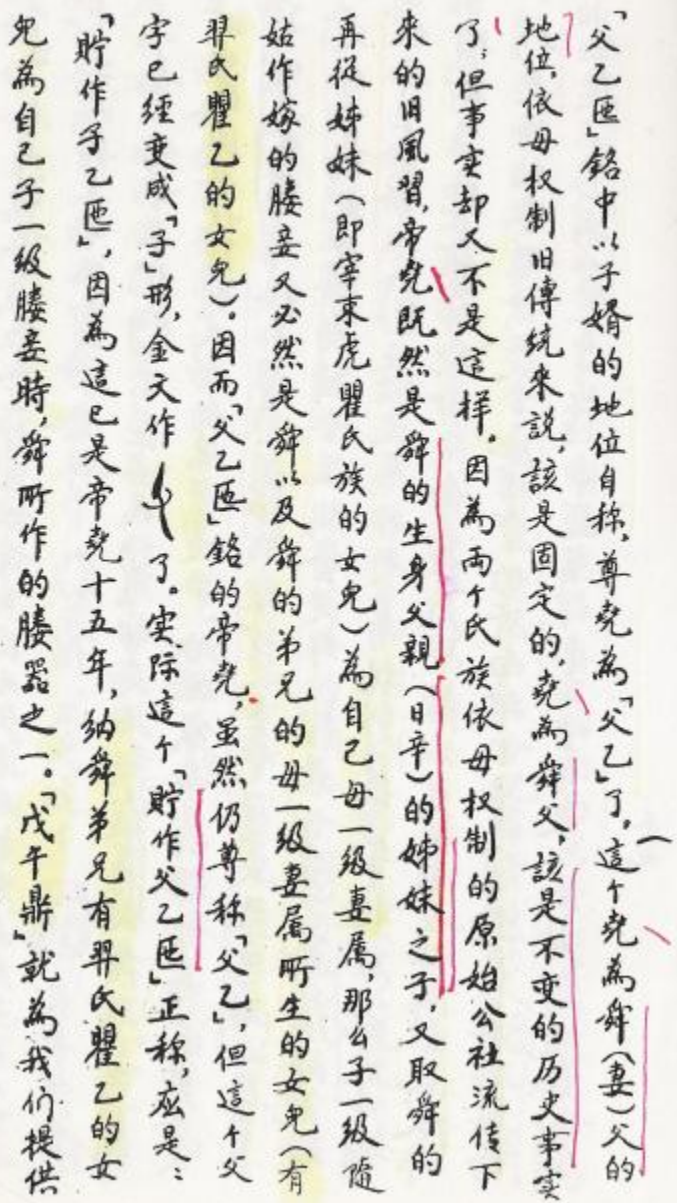 「父乙匜」銘中以子婿的地位自称，尊堯為「父乙」了，這个堯為舜（妻）父的
地位，依母权制旧傳統來説，該是固定的，堯為舜父，該是不变的历史事实
了，但事实却又不是這样。因為两个氏族依母权制的原始公社流傳下
来的旧風習，帝堯既然是舜的生身父親（日辛）的姊妹之子，又取舜的
再從姊妹（即宰束虎瞿氏族的女兒）為自己母一級妻属，那么子一級隨
姑作嫁的媵妾又必然是舜以及舜的弟兄的母一級妻属所生的女兒（有
羿氏瞿乙的女兒）。因而「父乙匜」銘的帝堯，虽然仍尊称「父乙」，但這个父
字已經变成「子」形，金文作 了。实际這个「貯作父乙匜」正称，应是：
「貯作子乙匜」，因為這已是帝堯十五年，納舜弟兄有羿氏瞿乙的女
兒為自己子一級媵妾時，舜所作的媵器之一。「戊午鼎」就為我们提供